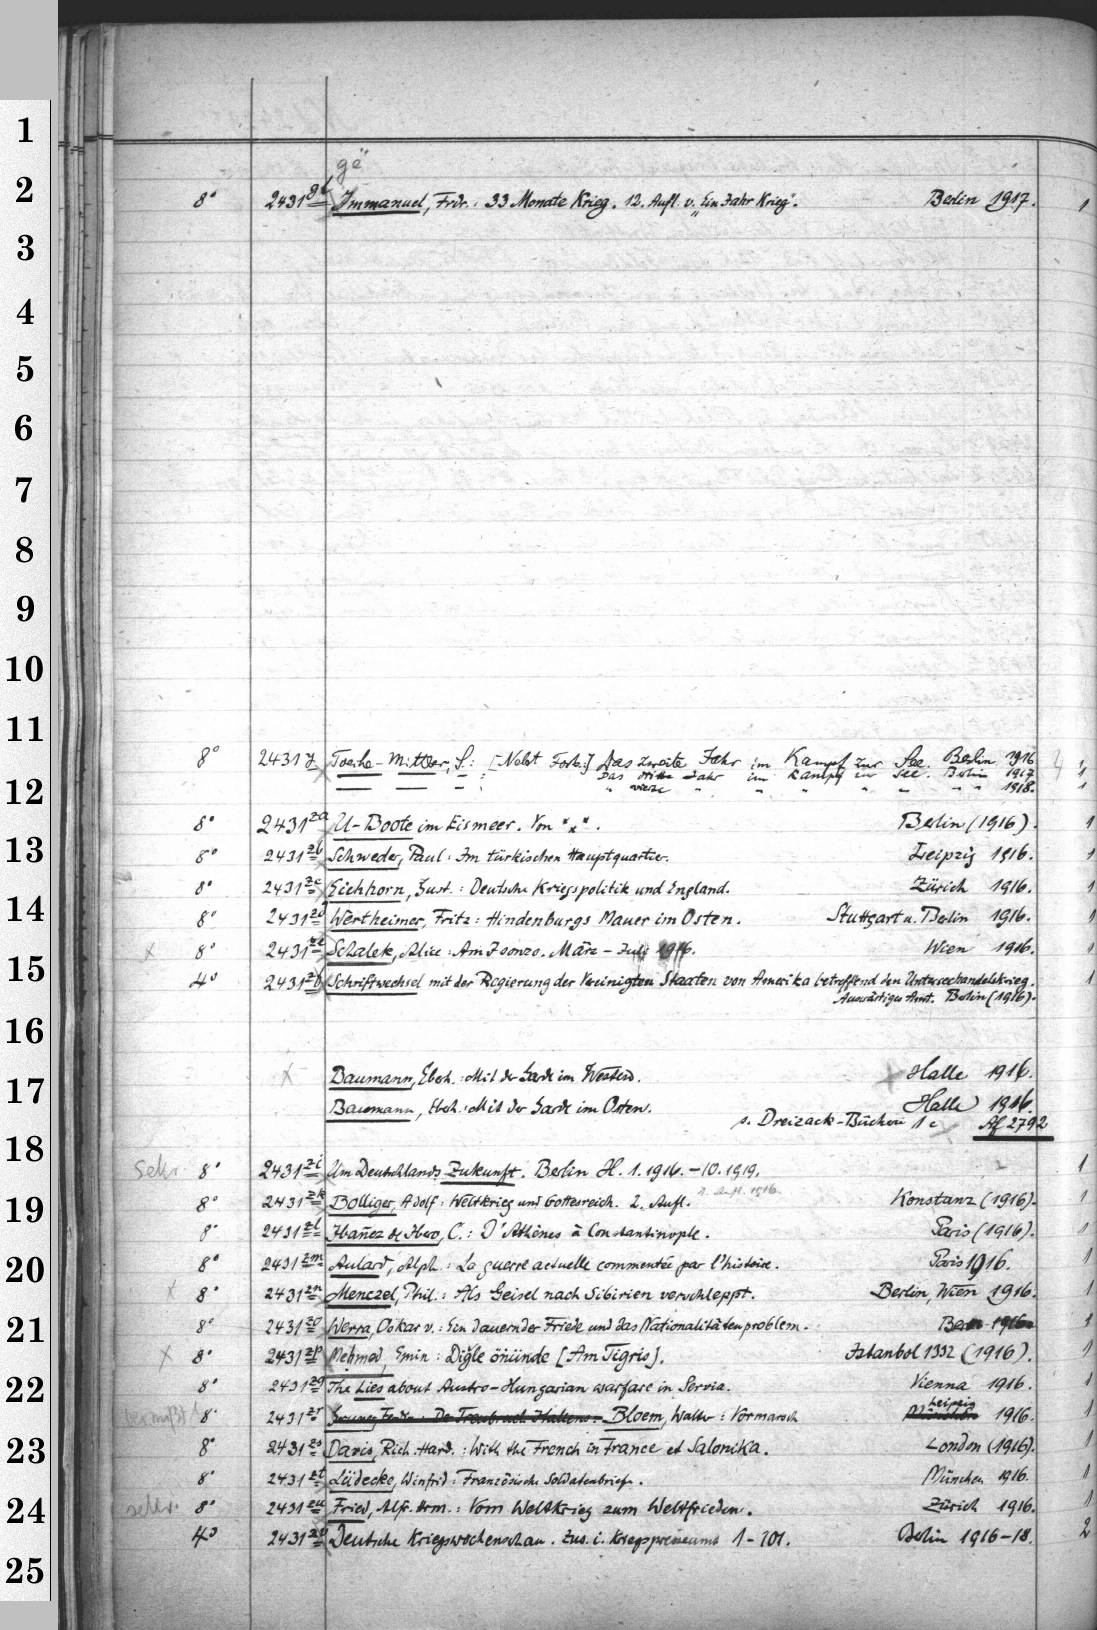 1
2
3
4
5
6
7
8
9
10
11
12
13
14
15
16
17
18
19
20
21
22
23
24
25
gë
8° 2431 Immanuel, Frdr.: 33 Monate Krieg. 12. Aufl. v. „Ein Jahr Krieg“. Berlin 1917. 1
8° 2431 y Toeche-Mittler, S.: [Nebst Forts.] Das zweite Jahr im Kampf zur See. Berlin 1916 1
— — — : Das dritte Jahr im Kampf zur See. Berlin 1917 1
— — — " vierte " " " " " " 1918. 1
8° 2431 za U-Boote im Eismeer. Von * * *. Berlin (1916). 1
8° 2431 zb Schweder, Paul: Im türkischen Hauptquartier. Leipzig 1916. 1
8° 2431 zc Eichhorn, Gust.: Deutsche Kriegspolitik und England. Zürich 1916. 1
8° 2431 zd Wertheimer, Fritz: Hindenburgs Mauer im Osten. Stuttgart u. Berlin 1916. 1
x 8° 2431 ze Schalek, Alice: Am Isonzo. März – Juli 1916. Wien 1916. 1
4° 2431 Schriftwechsel mit der Regierung der Vereinigten Staaten von Amerika betreffend den Unterseehandelskrieg. 1
Auswärtiges Amt. Berlin (1916).
x Baumann, Eberh.: Mit der Garde im Westen. x Halle 1916.
Baumann, Eberh.: Mit der Garde im Osten. Halle 1916.
s. Dreizack-Bücherei 1c Af 2792
Sekr. 8° 2431 zi Um Deutschlands Zukunft. Berlin H. 1. 1916. – 10. 1919. 1
8° 2431 zk Bolliger, Adolf: Weltkrieg und Gottesreich. 2. Aufl. 1. Aufl. 1916. Konstanz (1916). 1
8° 2431 zl Ibañez de Ibero, C.: D'Athènes à Constantinople. Paris (1916). 1
8° 2431 zm Aulard, Alph.: La guerre actuelle commentée par l'histoire. Paris 1916. 1
x 8° 2431 zn Menczel, Phil.: Als Geisel nach Sibirien verschleppt. Berlin, Wien 1916. 1
8° 2431 zo Werra, Oskar v.: Ein dauernder Friede und das Nationalitätenproblem. Bern 1916. 1
x 8° 2431 zp Mehmed, Emin: Digle önünde [Am Tigris]. Istanbol 1332 (1916). 1
8° 2431 zq The Lies about Austro-Hungarian warfare in Servia. Vienna 1916. 1
Leipzig
vermißt 8° 2431 zr Der Treubruch Italiens. Bloem, Walter: Vormarsch München 1916. 1
8° 2431 zs Davis, Rich. Hard.: With the French in France et Salonika. London (1916). 1
8° 2431 zt Lüdecke, Winfrid: Französische Soldatenbriefe. München 1916. 1
sekr. 8° 2431 zu Fried, Alfr. Herm.: Vom Weltkrieg zum Weltfrieden. Zürich 1916. 1
4° 2431 zv Deutsche Kriegswochenschau. Zus. i. Kriegspresseamt 1–101. Berlin 1916–18. 2